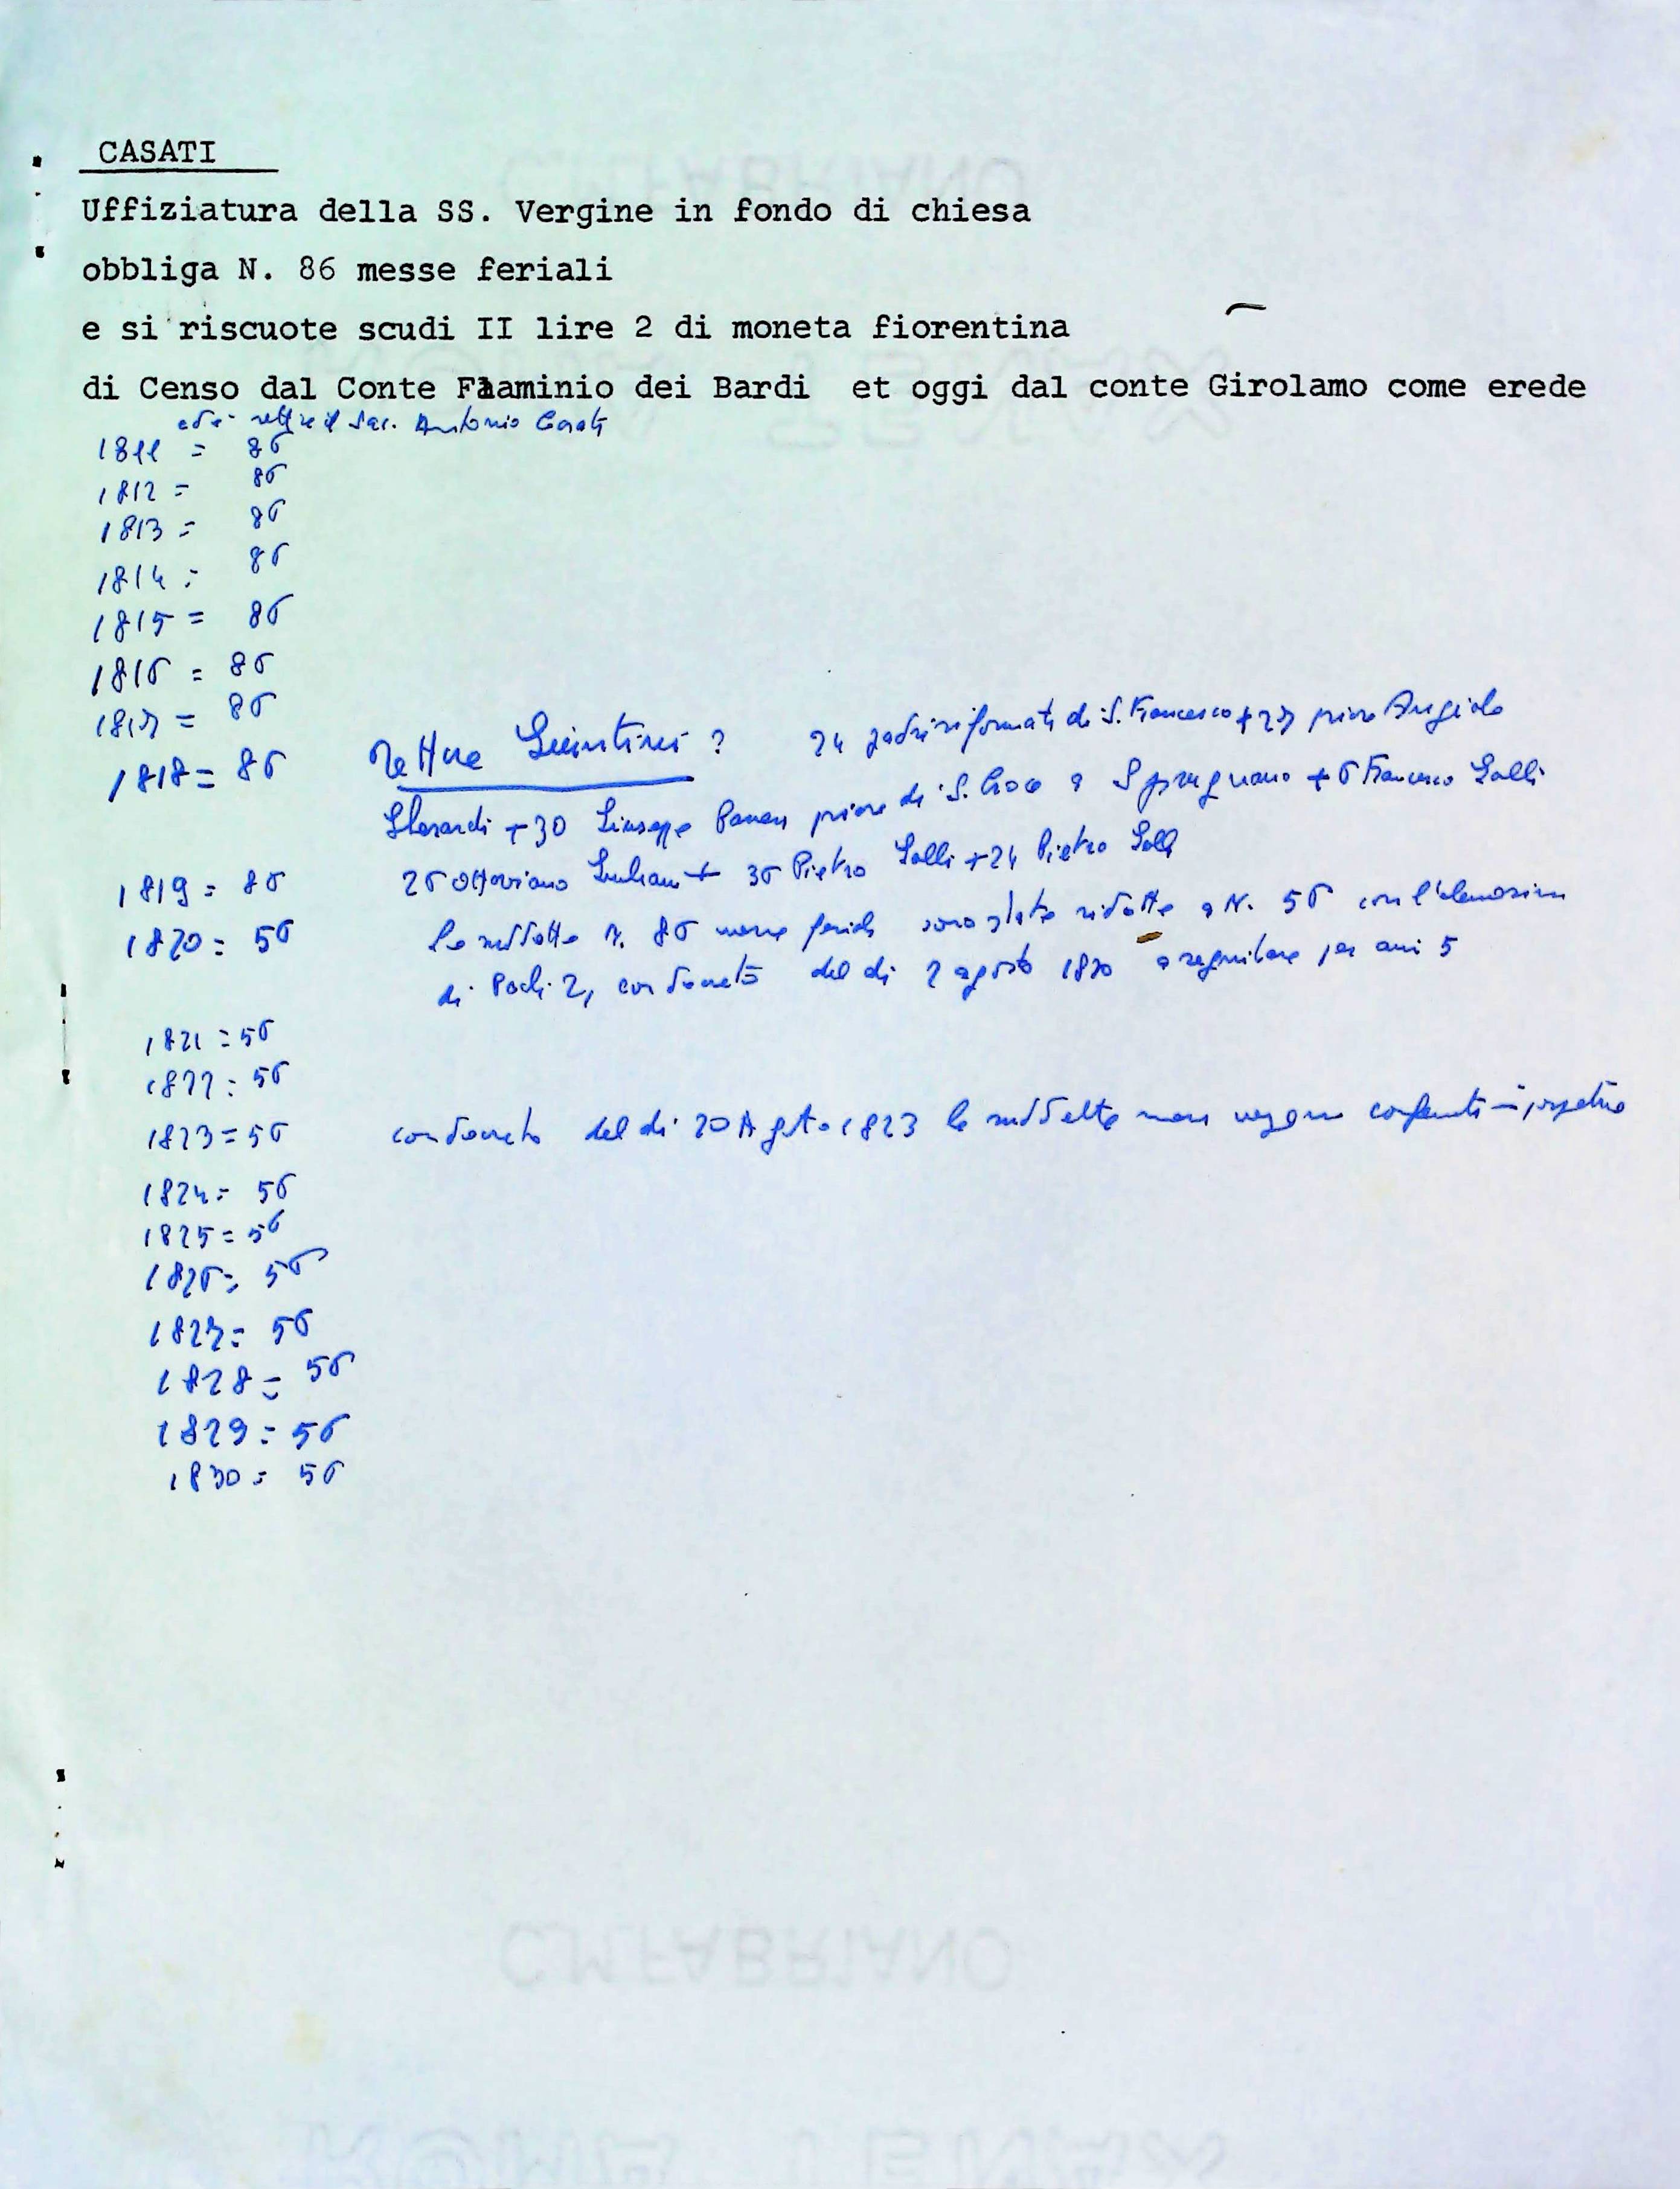 CASATI
Uffiziatura della SS. Vergine in fondo di chiesa
obbliga N. 86 messe feriali
e si riscuote scudi II lire 2 di moneta fiorentina
di Censo dal Conte Flaminio dei Bardi et oggi dal conte Girolamo come erede
il Sac. Antonio Casati
1811 = 86
1812 = 86
1813 = 86
1814 = 86
1815 = 86
1816 = 86
1817 = 86
1818 = 86 rettore Guintini ? 24 padri riformati di S. Francesco + 27 priore Angiolo
Gherardi + 30 Giuseppe priore di S. Croce a Spugnano + 6 Francesco Galli
1819 = 86 26 Ottaviano + 36 Pietro Galli + 24 Pietro Galli
1820 = 56 le suddette N. 86 messe feriali sono state ridotte a N. 56 con l'elemosina
di Paoli 2, con decreto del di 2 agosto 1820 a seguitare per anni 5
1821 = 56
1822 = 56
1823 = 56 con decreto del di 20 Agosto 1823 le suddette messe in perpetuo
1824 = 56
1825 = 56
1826 = 56
1827 = 56
1828 = 56
1829 = 56
1830 = 56
C.M.FABRIANO
ROMA TENAX